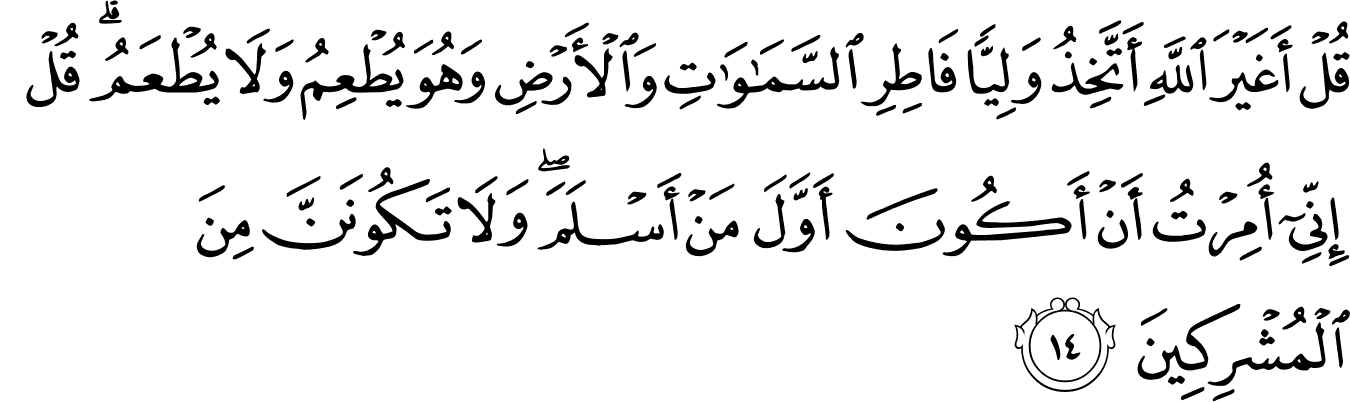 قُلۡ أَغَيۡرَ ٱللَّهِ أَتَّخِذُ وَلِيّٗا فَاطِرِ ٱلسَّمَٰوَٰتِ وَٱلۡأَرۡضِ وَهُوَ يُطۡعِمُ وَلَا يُطۡعَمُۗ قُلۡ
إِنِّيٓ أُمِرۡتُ أَنۡ أَكُونَ أَوَّلَ مَنۡ أَسۡلَمَۖ وَلَا تَكُونَنَّ مِنَ
ٱلۡمُشۡرِكِينَ ١٤